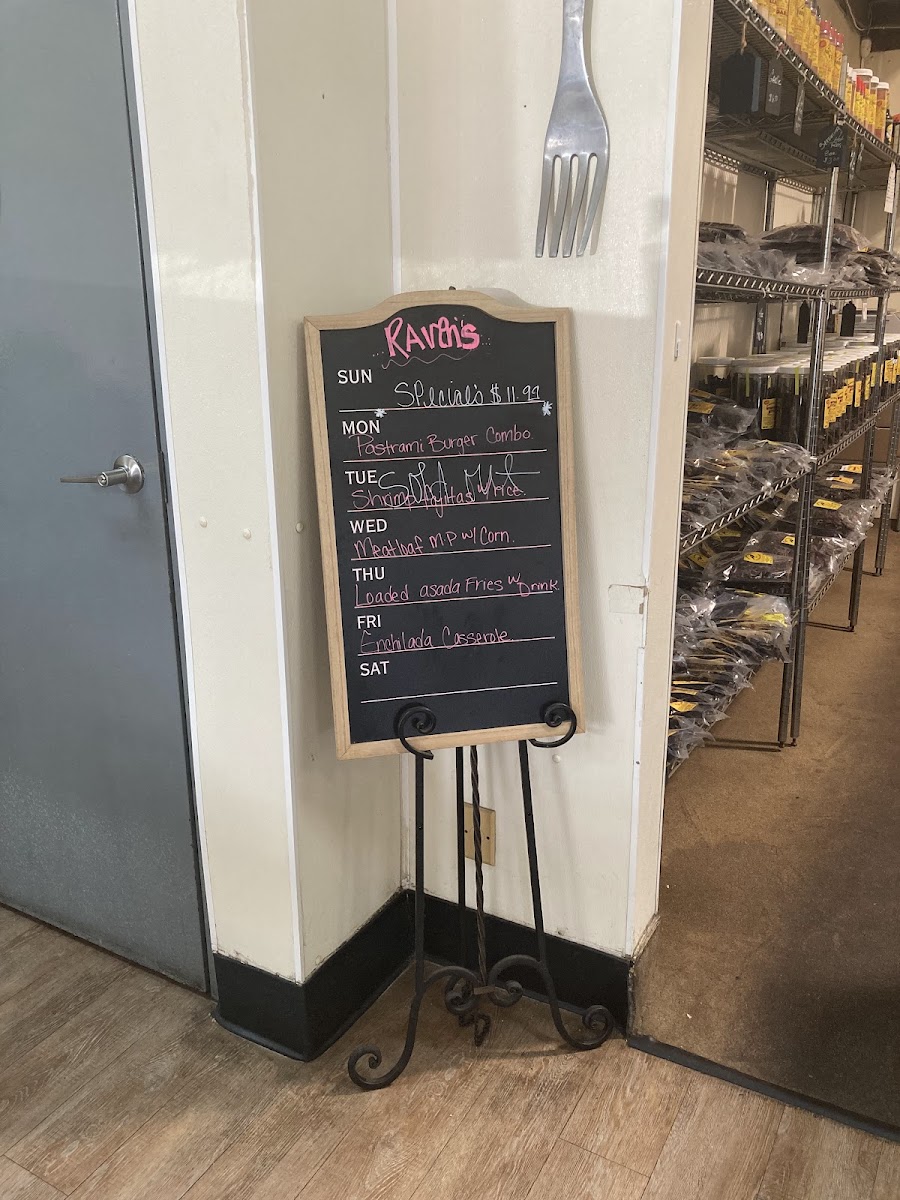 Raven's
SUN
Special's $11.99
MON
Pastrami Burger Combo.
TUE
Sold Out
Shrimp Fajitas w/ rice.
WED
Meatloaf M.P w/ Corn.
THU
Loaded asada Fries w/ Drink.
FRI
Enchilada Casserole.
SAT